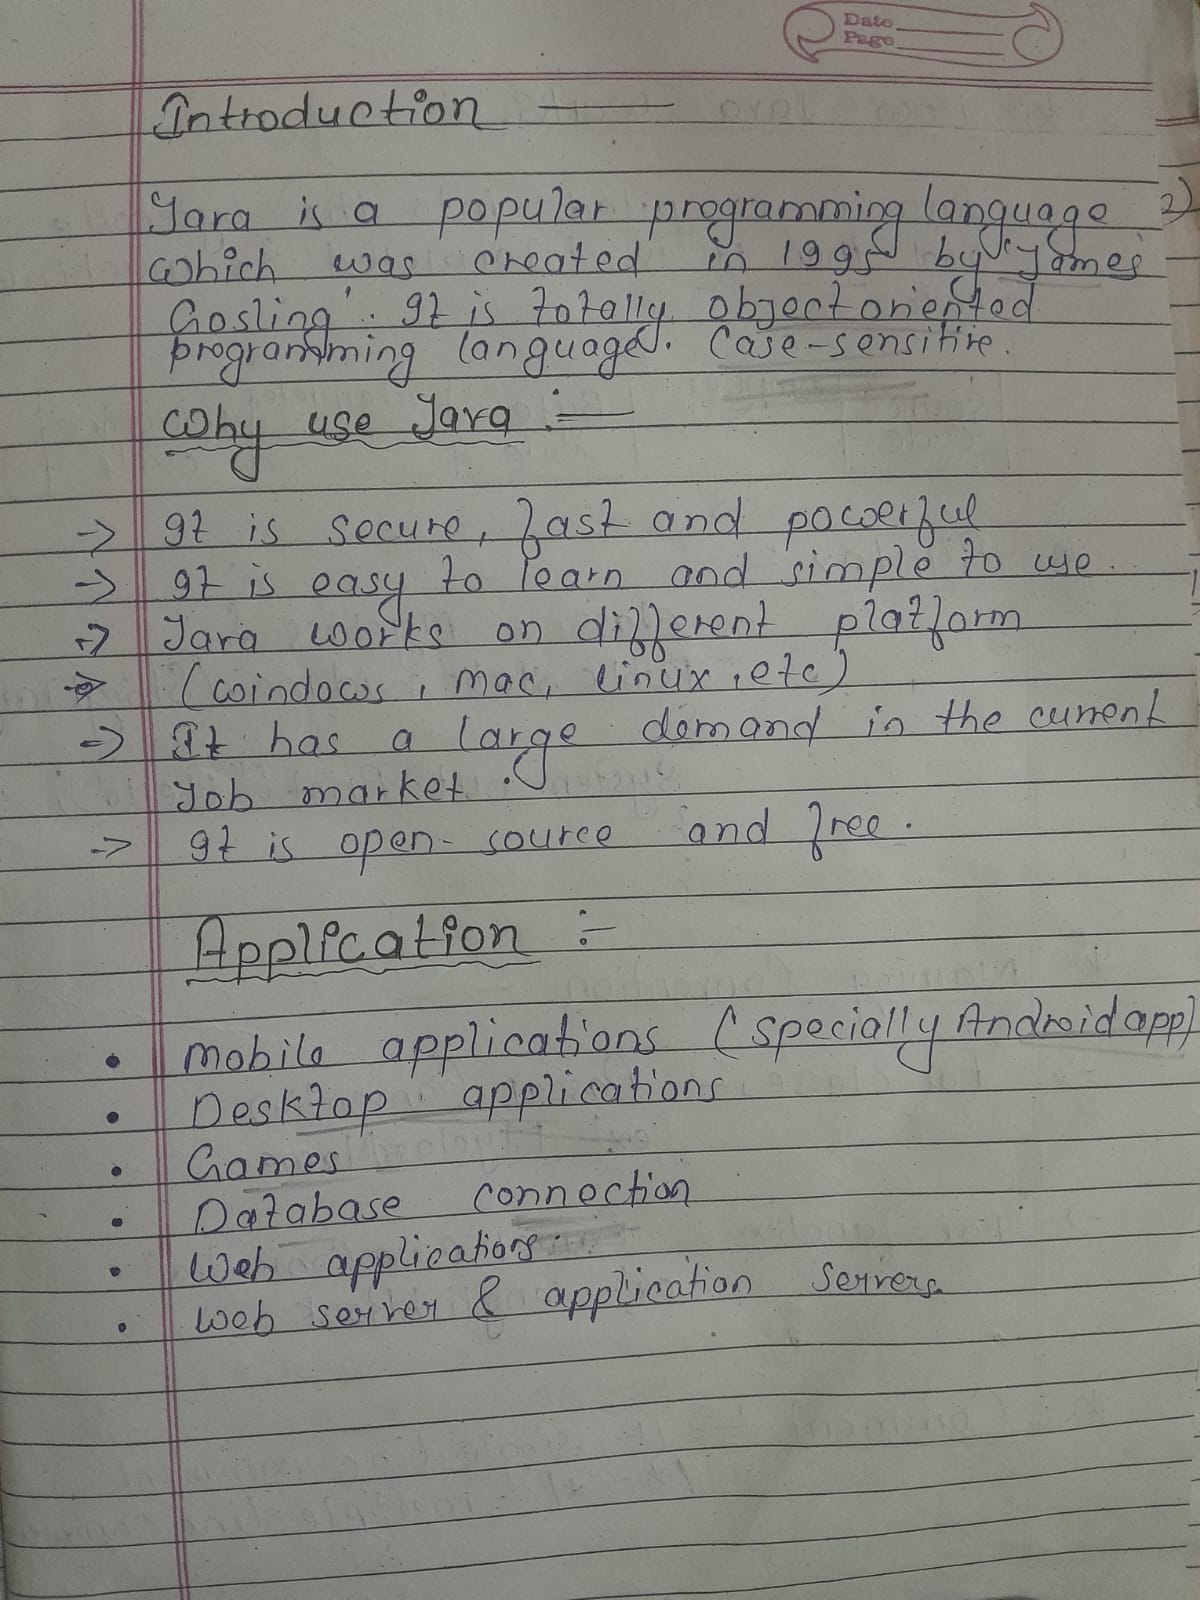 Date
Page
Introduction
Java is a popular programming language
which was created in 1995 by 'James
Gosling'. It is totally object oriented
programming language. Case-sensitive.
Why use Java :-
-> It is secure, fast and powerful
-> It is easy to learn and simple to use.
-> Java works on different platform
-> (windows, mac, linux, etc)
-> It has a large demand in the current
Job market.
-> It is open-source and free.
Application :-
• mobile applications (specially Android app)
• Desktop applications
• Games
• Database connection
• Web applications.
• Web server & application servers.
2)